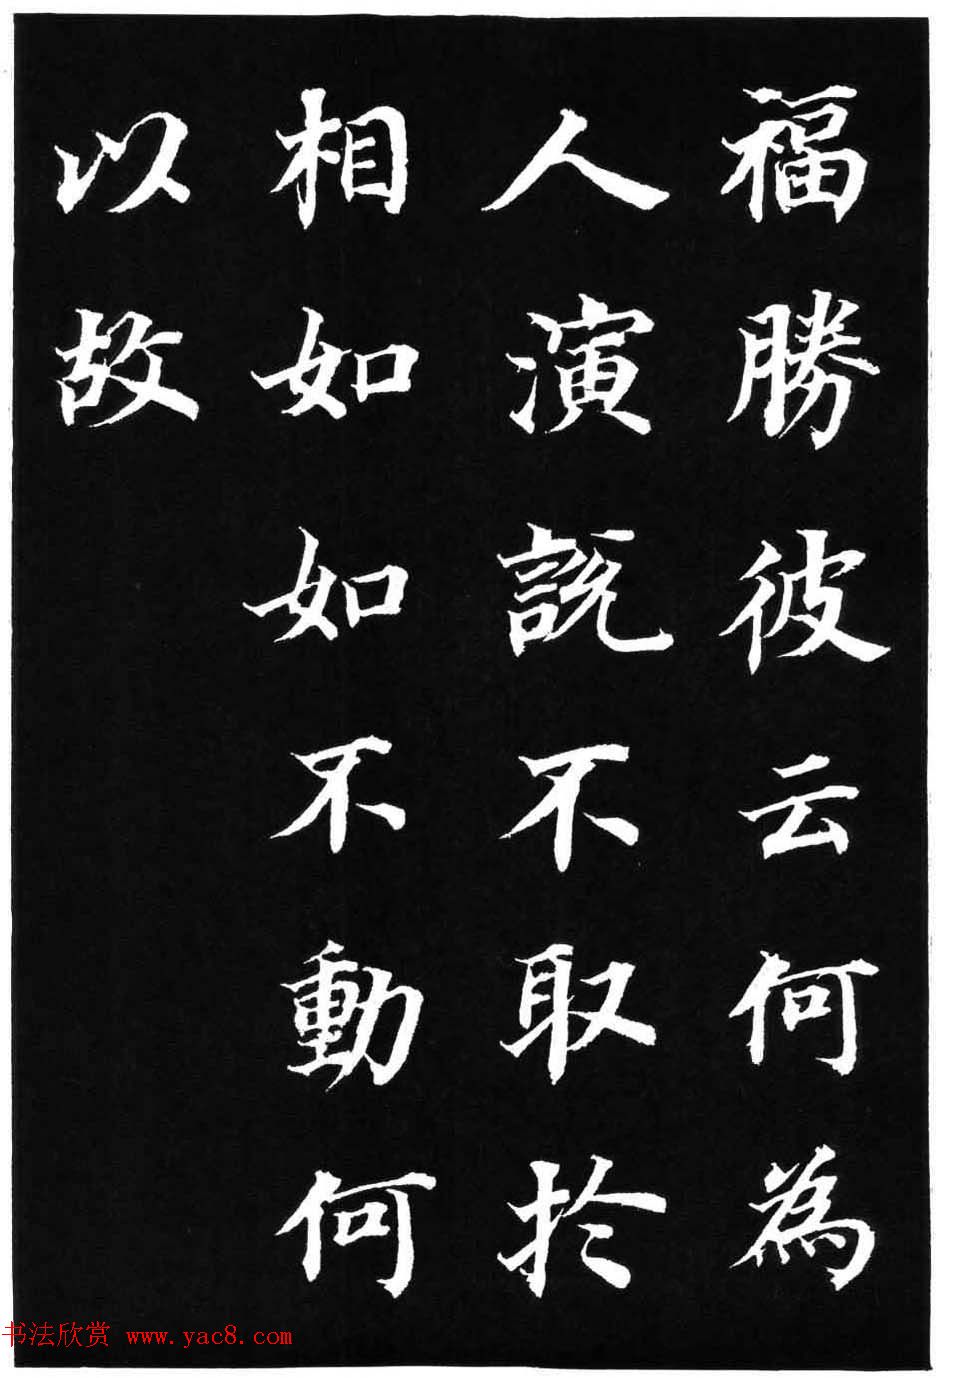 福勝彼云何為
人演說不取於
相如如不動何
以故
书法欣赏 www.yac8.com